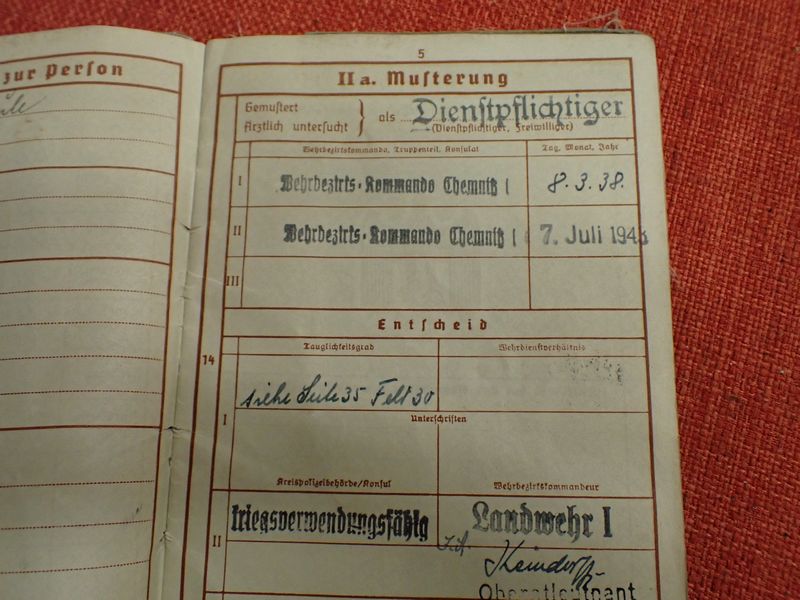 zur Person
5
II a. Musterung
Gemustert
Ärztlich untersucht
als
Dienstpflichtiger
(Dienstpflichtiger, Freiwilliger)
Wehrbezirkskommando, Truppenteil, Konsulat
Tag, Monat, Jahr
I
Wehrbezirks-Kommando Chemnitz I
8.3.38.
II
Wehrbezirks-Kommando Chemnitz I
7. Juli 1943
III
Entscheid
14
Tauglichkeitsgrad
Wehrdienstverhältnis
I
siehe Seite 35 Feld 30
Unterschriften
Kreispolizeibehörde/Konsul
Wehrbezirkskommandeur
II
kriegsverwendungsfähig
Landwehr I
Oberstleutnant